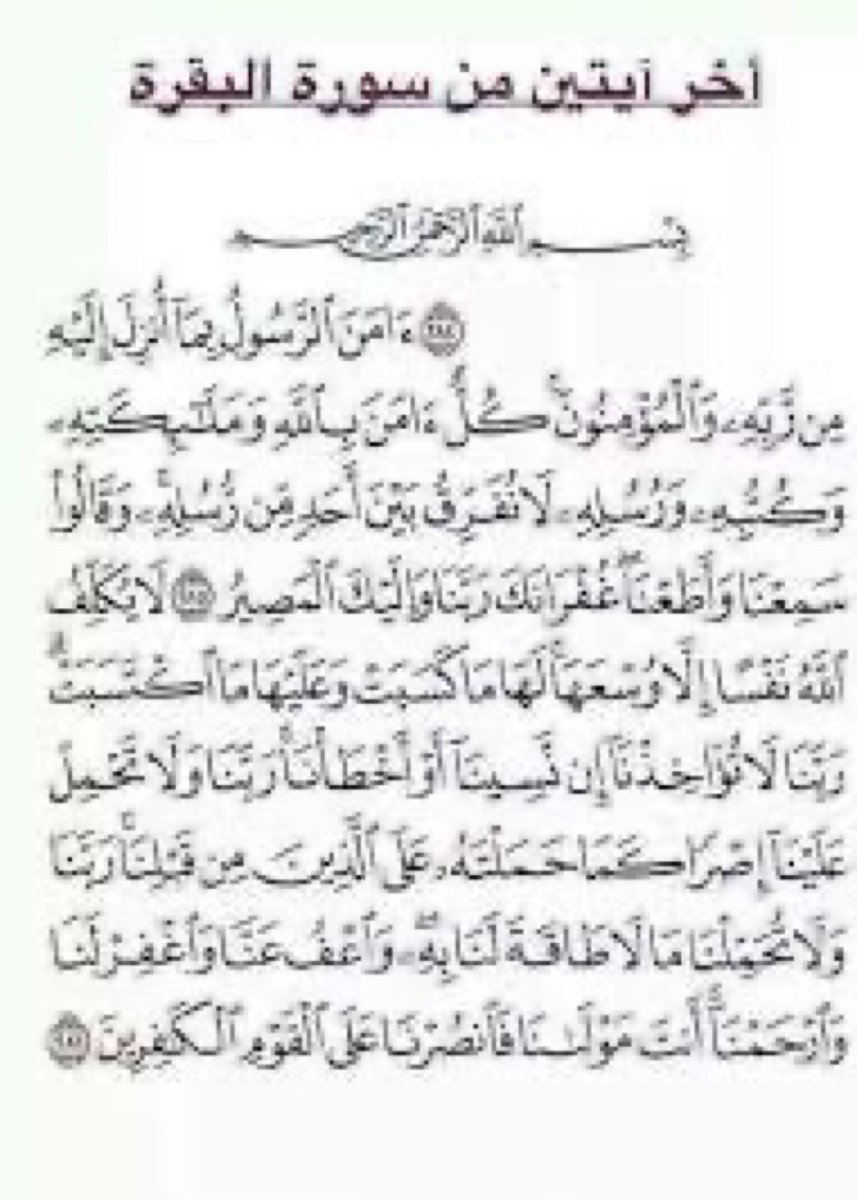 آخر آيتين من سورة البقرة
بِسْمِ ٱللَّهِ ٱلرَّحْمَٰنِ ٱلرَّحِيمِ
﴿٢٨٤﴾ ءَامَنَ ٱلرَّسُولُ بِمَآ أُنزِلَ إِلَيْهِ
مِن رَّبِّهِۦ وَٱلْمُؤْمِنُونَ ۚ كُلٌّ ءَامَنَ بِٱللَّهِ وَمَلَٰٓئِكَتِهِۦ
وَكُتُبِهِۦ وَرُسُلِهِۦ لَا نُفَرِّقُ بَيْنَ أَحَدٍ مِّن رُّسُلِهِۦ ۚ وَقَالُوا۟
سَمِعْنَا وَأَطَعْنَا ۖ غُفْرَانَكَ رَبَّنَا وَإِلَيْكَ ٱلْمَصِيرُ ﴿٢٨٥﴾ لَا يُكَلِّفُ
ٱللَّهُ نَفْسًا إِلَّا وُسْعَهَا ۚ لَهَا مَا كَسَبَتْ وَعَلَيْهَا مَا ٱكْتَسَبَتْ ۗ
رَبَّنَا لَا تُؤَاخِذْنَآ إِن نَّسِينَآ أَوْ أَخْطَأْنَا ۚ رَبَّنَا وَلَا تَحْمِلْ
عَلَيْنَآ إِصْرًا كَمَا حَمَلْتَهُۥ عَلَى ٱلَّذِينَ مِن قَبْلِنَا ۚ رَبَّنَا
وَلَا تُحَمِّلْنَا مَا لَا طَاقَةَ لَنَا بِهِۦ ۖ وَٱعْفُ عَنَّا وَٱغْفِرْ لَنَا
وَٱرْحَمْنَآ ۚ أَنتَ مَوْلَىٰنَا فَٱنصُرْنَا عَلَى ٱلْقَوْمِ ٱلْكَٰفِرِينَ ﴿٢٨٦﴾